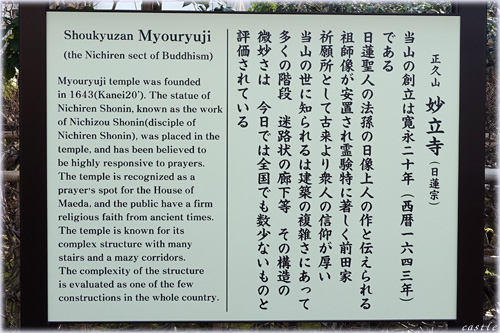 Shoukyuzan Myouryuji
(the Nichiren sect of Buddhism)
Myouryuji temple was founded
in 1643(Kanei20'). The statue of
Nichiren Shonin, known as the work
of Nichizou Shonin(disciple of
Nichiren Shonin), was placed in the
temple, and has been believed to
be highly responsive to prayers.
The temple is recognized as a
prayer's spot for the House of
Maeda, and the public have a firm
religious faith from ancient times.
The temple is known for its
complex structure with many
stairs and a mazy corridors.
The complexity of the structure
is evaluated as one of the few
constructions in the whole country.
正久山 妙立寺(日蓮宗)
当山の創立は寛永二十年(西暦一六四三年)
である
日蓮聖人の法孫の日像上人の作と伝えられる
祖師像が安置され霊験特に著しく前田家
祈願所として古来より衆人の信仰が厚い
当山の世に知られるは建築の複雑さにあって
多くの階段 迷路状の廊下等 その構造の
微妙さは 今日では全国でも数少ないものと
評価されている
castle